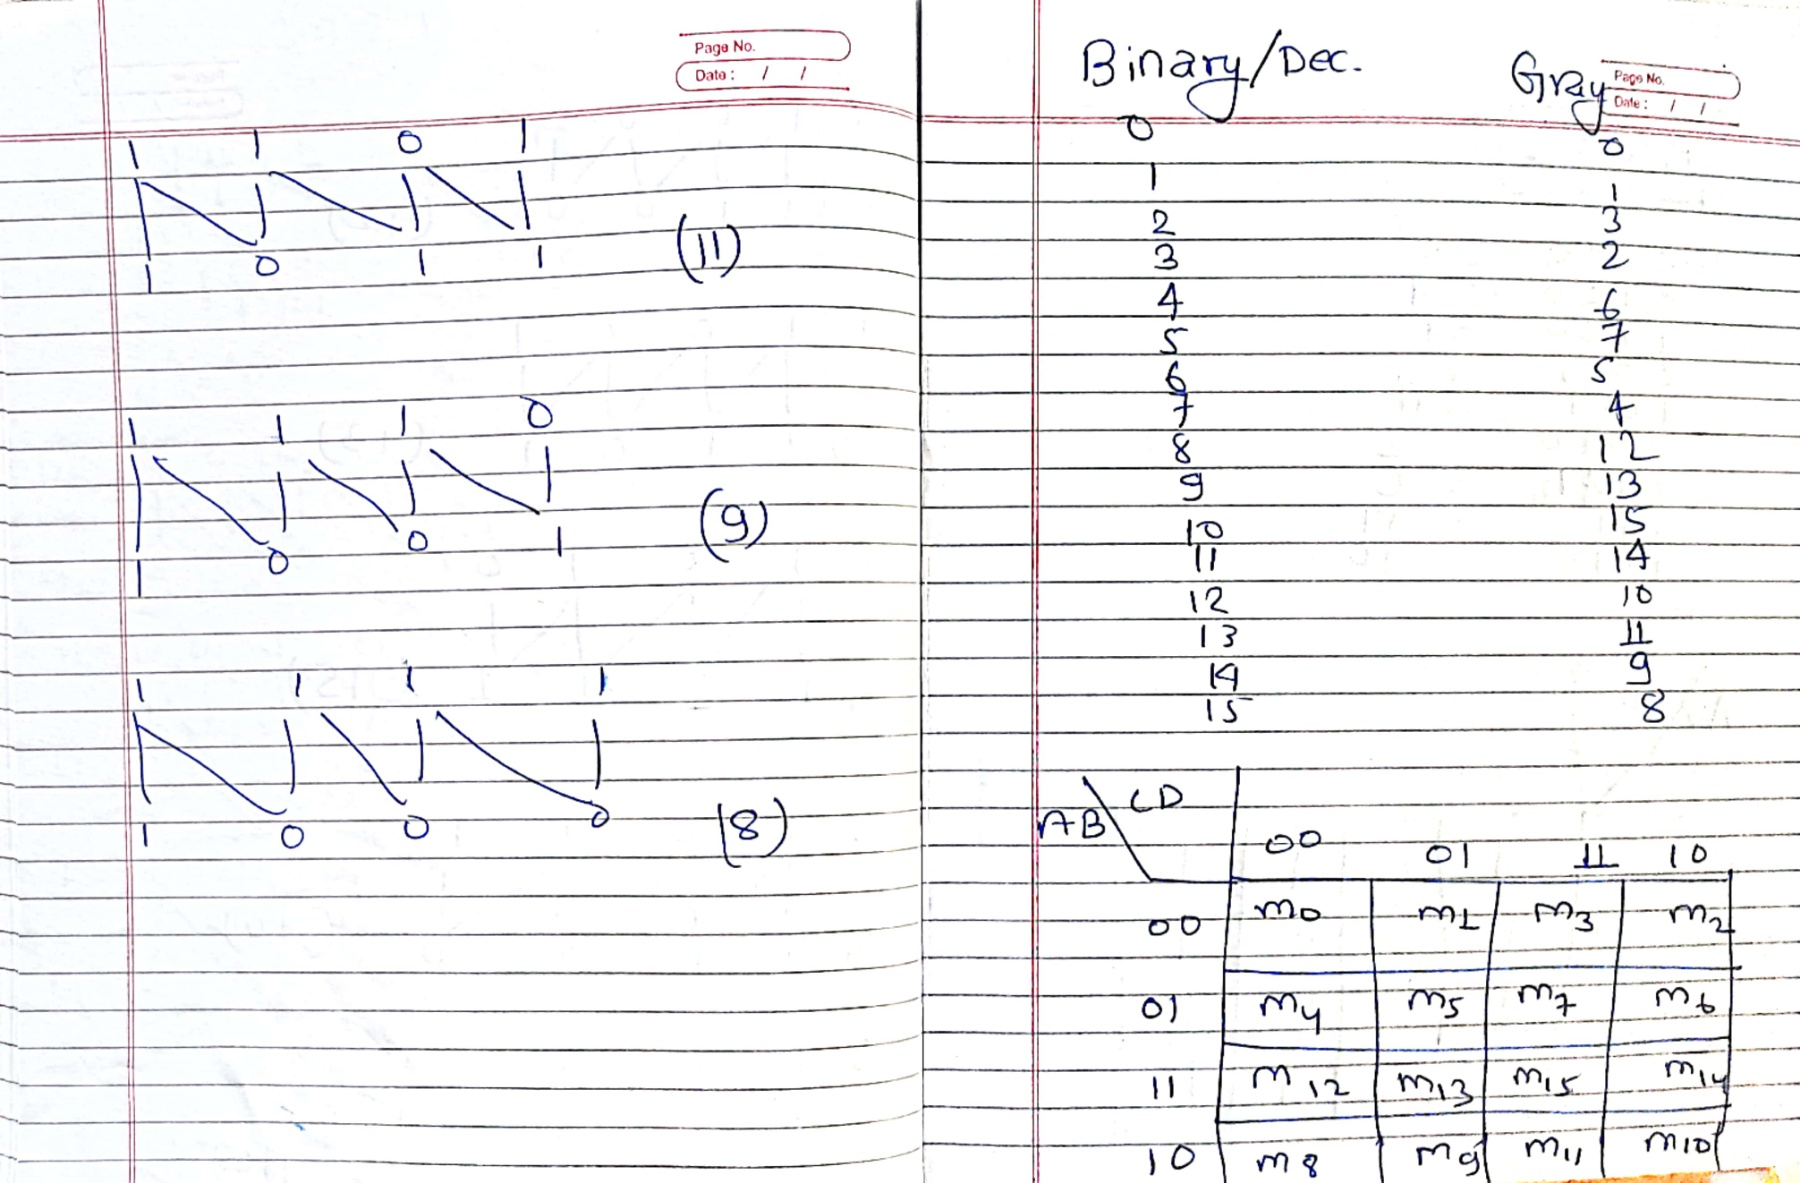 Page No.
Date : / /
1 1 0 1
1 0 1 1 (11)
1 1 1 0
1 0 0 1 (9)
1 1 1 1
1 0 0 0 (8)
Page No.
Date : / /
Binary/Dec. Gray
0 0
1 1
2 3
3 2
4 6
5 7
6 5
7 4
8 12
9 13
10 15
11 14
12 10
13 11
14 9
15 8
AB CD
00 01 11 10
00 m0 m1 m3 m2
01 m4 m5 m7 m6
11 m12 m13 m15 m14
10 m8 m9 m11 m10